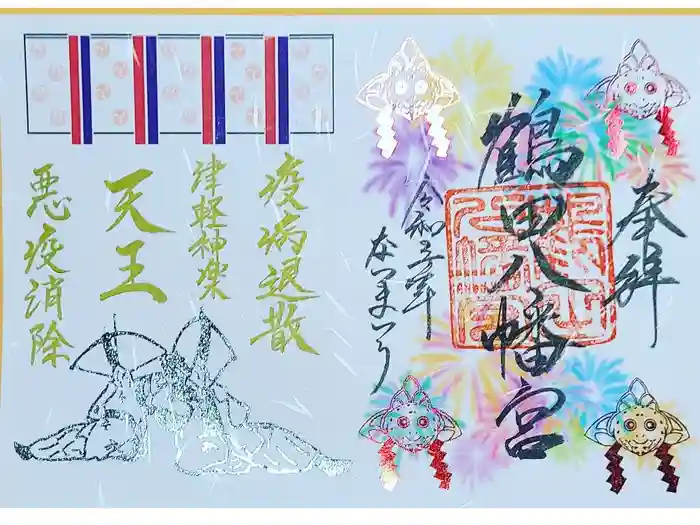 奉拝
鶴田八幡宮
令和五年
なつまつり
疫病退散
津軽神楽
天王
悪疫消除